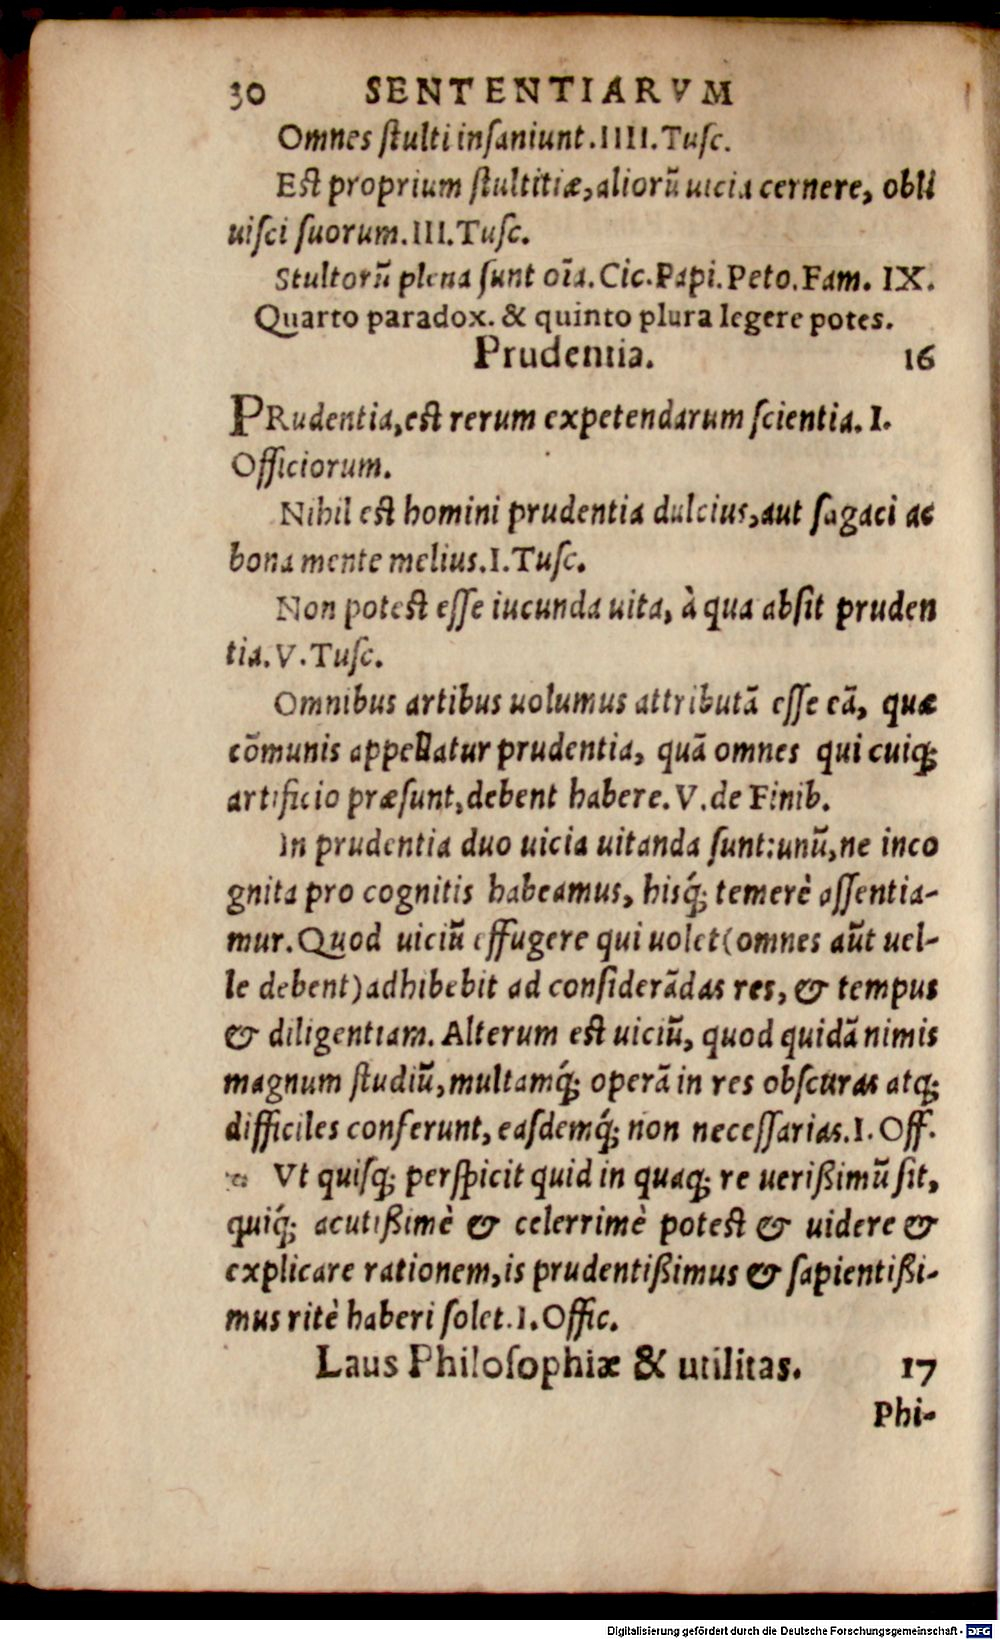 30 SENTENTIARVM
Omnes ſtulti inſaniunt.IIII.Tuſc.
Eſt proprium ſtultitiæ,aliorũ uicia cernere, obli
uiſci ſuorum.III.Tuſc.
Stultorũ plena ſunt oĩa.Cic.Papi.Peto.Fam. IX.
Quarto paradox. & quinto plura legere potes.
Prudentia. 16
PRudentia,eſt rerum expetendarum ſcientia. I.
Officiorum.
Nihil eſt homini prudentia dulcius,aut ſagaci ac
bona mente melius.I.Tuſc.
Non poteſt eſſe iucunda uita, à qua abſit pruden
tia.V.Tuſc.
Omnibus artibus uolumus attributã eſſe eã, quæ
cõmunis appellatur prudentia, quã omnes qui cuiq;
artificio præſunt,debent habere.V.de Finib.
In prudentia duo uicia uitanda ſunt:unũ,ne inco
gnita pro cognitis habeamus, hisq́; temerè aſſentia-
mur.Quod uiciũ effugere qui uolet(omnes aũt uel-
le debent)adhibebit ad conſiderãdas res, & tempus
& diligentiam. Alterum eſt uiciũ, quod quidã nimis
magnum ſtudiũ,multamq́; operã in res obſcuras atq;
difficiles conferunt,easdemq́; non neceſſarias.I.Off.
Vt quiſq; perſpicit quid in quaq; re uerißimũ ſit,
quiq́; acutißimè & celerrimè poteſt & uidere &
explicare rationem,is prudentißimus & ſapientißi-
mus ritè haberi ſolet.I.Offic.
Laus Philoſophiæ & utilitas. 17
Phi-
Digitalisierung gefördert durch die Deutsche Forschungsgemeinschaft - DFG